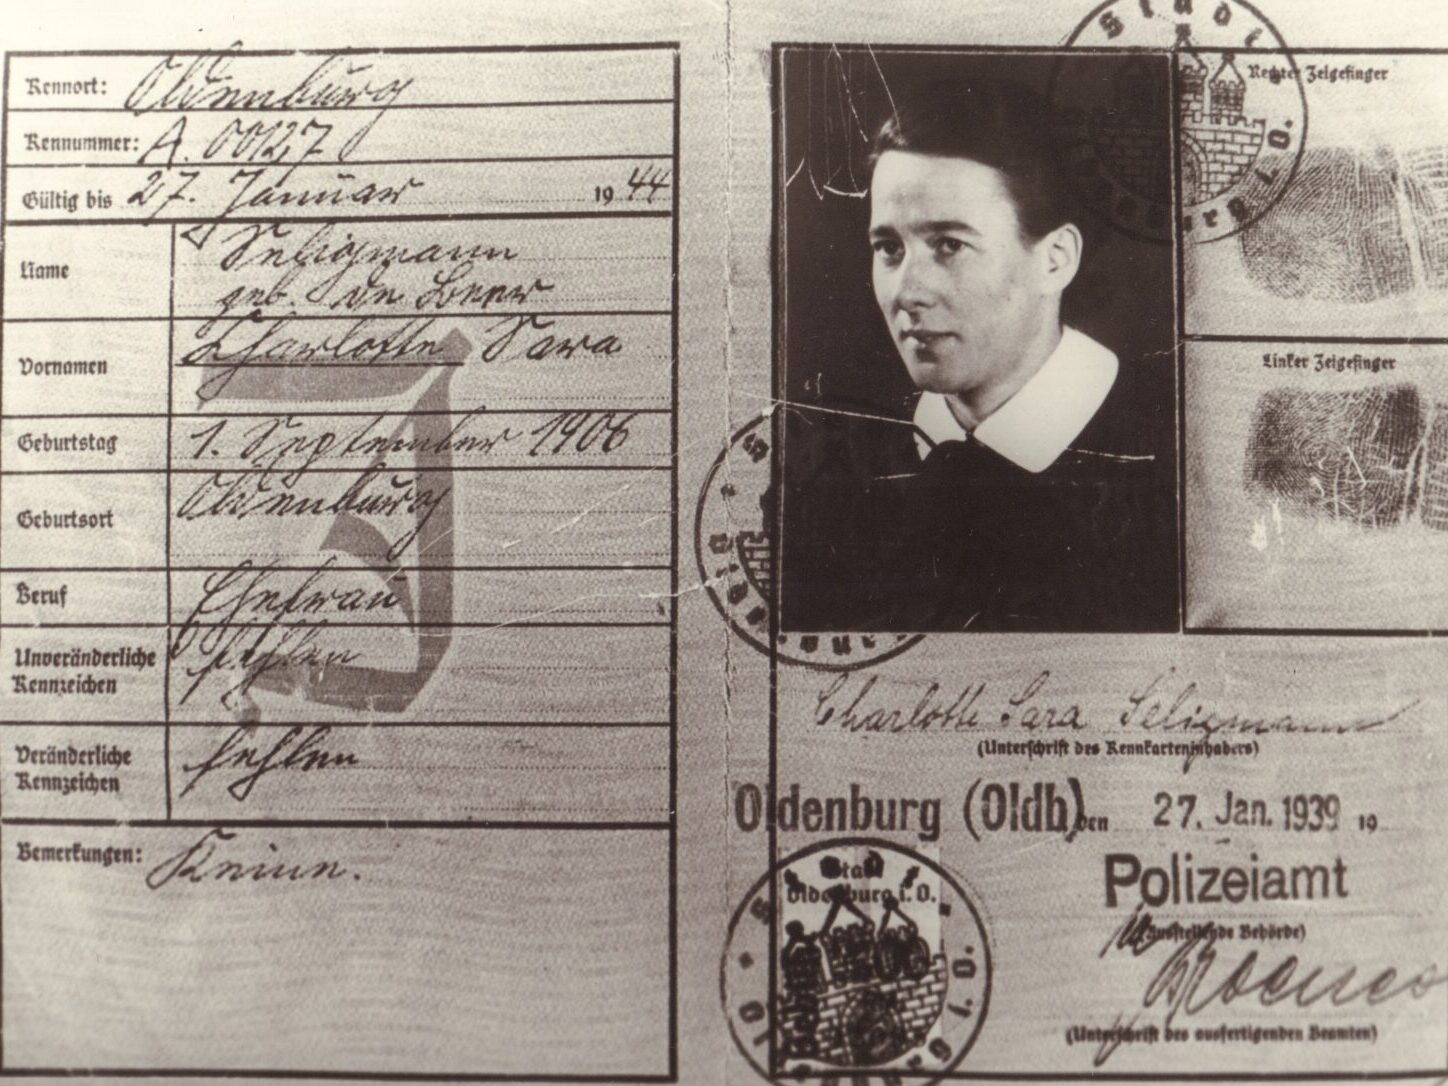 Kennort: Oldenburg
Kennummer: A. 00127
Gültig bis 27. Januar 1944
Name Seligmann
geb. de Beer
Vornamen Charlotte Sara
Geburtstag 1. September 1906
Geburtsort Oldenburg
Beruf Ehefrau
Unveränderliche Kennzeichen fehlen
Veränderliche Kennzeichen fehlen
Bemerkungen: Keine.
J
Stadt
Rechter Zeigefinger
Linker Zeigefinger
Charlotte Sara Seligmann
(Unterschrift des Kennkarteninhabers)
Oldenburg (Oldb), den 27. Jan. 1939 19
Polizeiamt
(Ausstellende Behörde)
(Unterschrift des ausfertigenden Beamten)
Stadt
Oldenburg i. O.